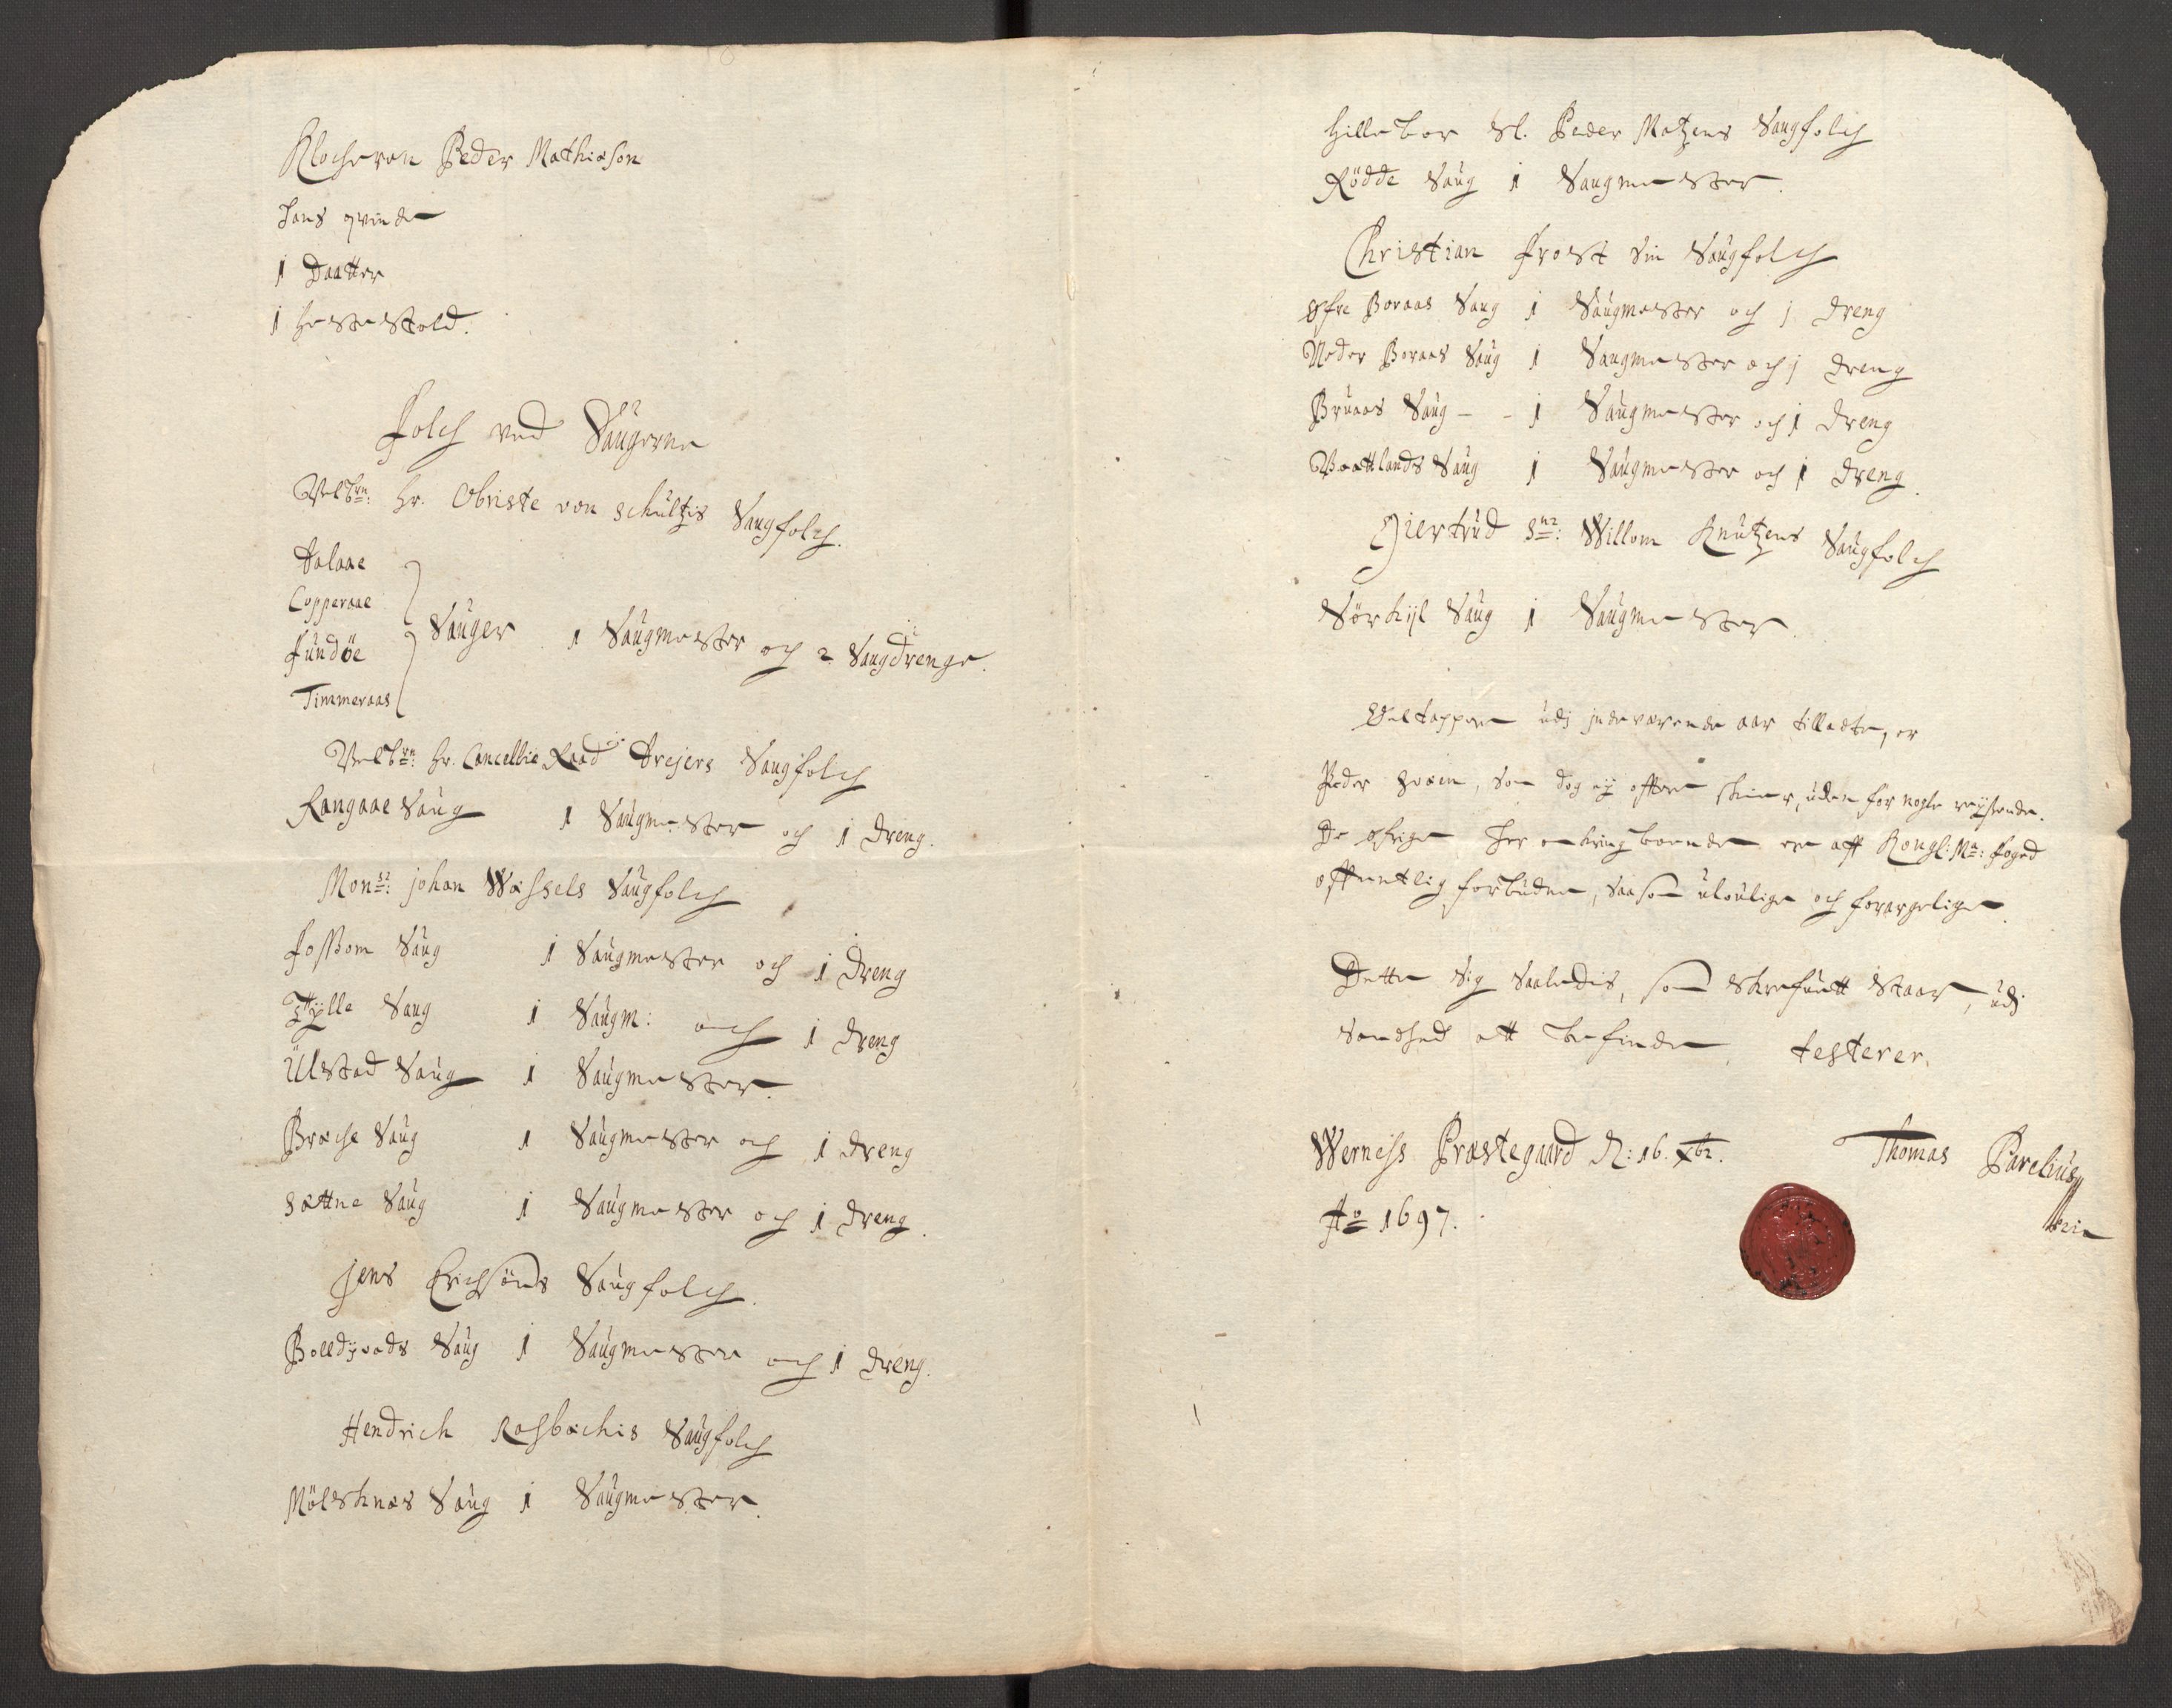 Klocheren Peder Mathiæson
hans qvinde
1 Daatter
1 Hestestold.
Folch ved Saugerne
Velbrn: Hr. Obriste von Schultzis Saugfolch.
Aalaae
Copperaae
Fundöe
Timmeraas
Sauger 1 Saugmester och 2 Saugdrenge.
Velbrn: Hr. Cancellie Raad Drejers Saugfolch
Rangaae Saug 1 Saugmester och 1 dreng.
Monsr: johan Wessels Saugfolch
Fossom Saug 1 Saugmester och 1 dreng
Hylle Saug 1 Saugm: och 1 dreng
Ulstad Saug 1 Saugmester.
Bræche Saug 1 Saugmester och 1 dreng
Sættne Saug 1 Saugmester och 1 dreng.
Jens Erichsöns Saugfolch.
Bolldvads Saug 1 Saugmester och 1 dreng.
Hendrich Rosbachis Saugfolch
Mölsknæs Saug 1 Saugmester.
Hillebor Sl. Peder Matzens Saugfolch
Rödde Saug 1 Saugmester.
Christian Frost sin Saugfolch
Øfre Boraas Saug 1 Saugmester och 1 dreng
Neder Boraas Saug 1 Saugmester och 1 dreng
Bruaas Saug - - 1 Saugmester och 1 dreng
Vaattlands Saug 1 Saugmester och 1 dreng.
Giertrud Willom Knutzens Saugfolch
Sörkijl Saug 1 Saugmester.
Øeltappere udj indeværende aar tilladte, er
Peder som dog ej offtere skier, uden for nogle reysende.
De øfrige her omkring boende ere aff Kongl: Ma: Foged
offentlig forbuden, saasom ulovlige och forargelige.
Dette sig saaledis, som skrefuett staar, udj
Sandhed att befinde, testerer.
Werness Præstegaard d: 16. xbr.
Ao 1697.
Thomas Parelius